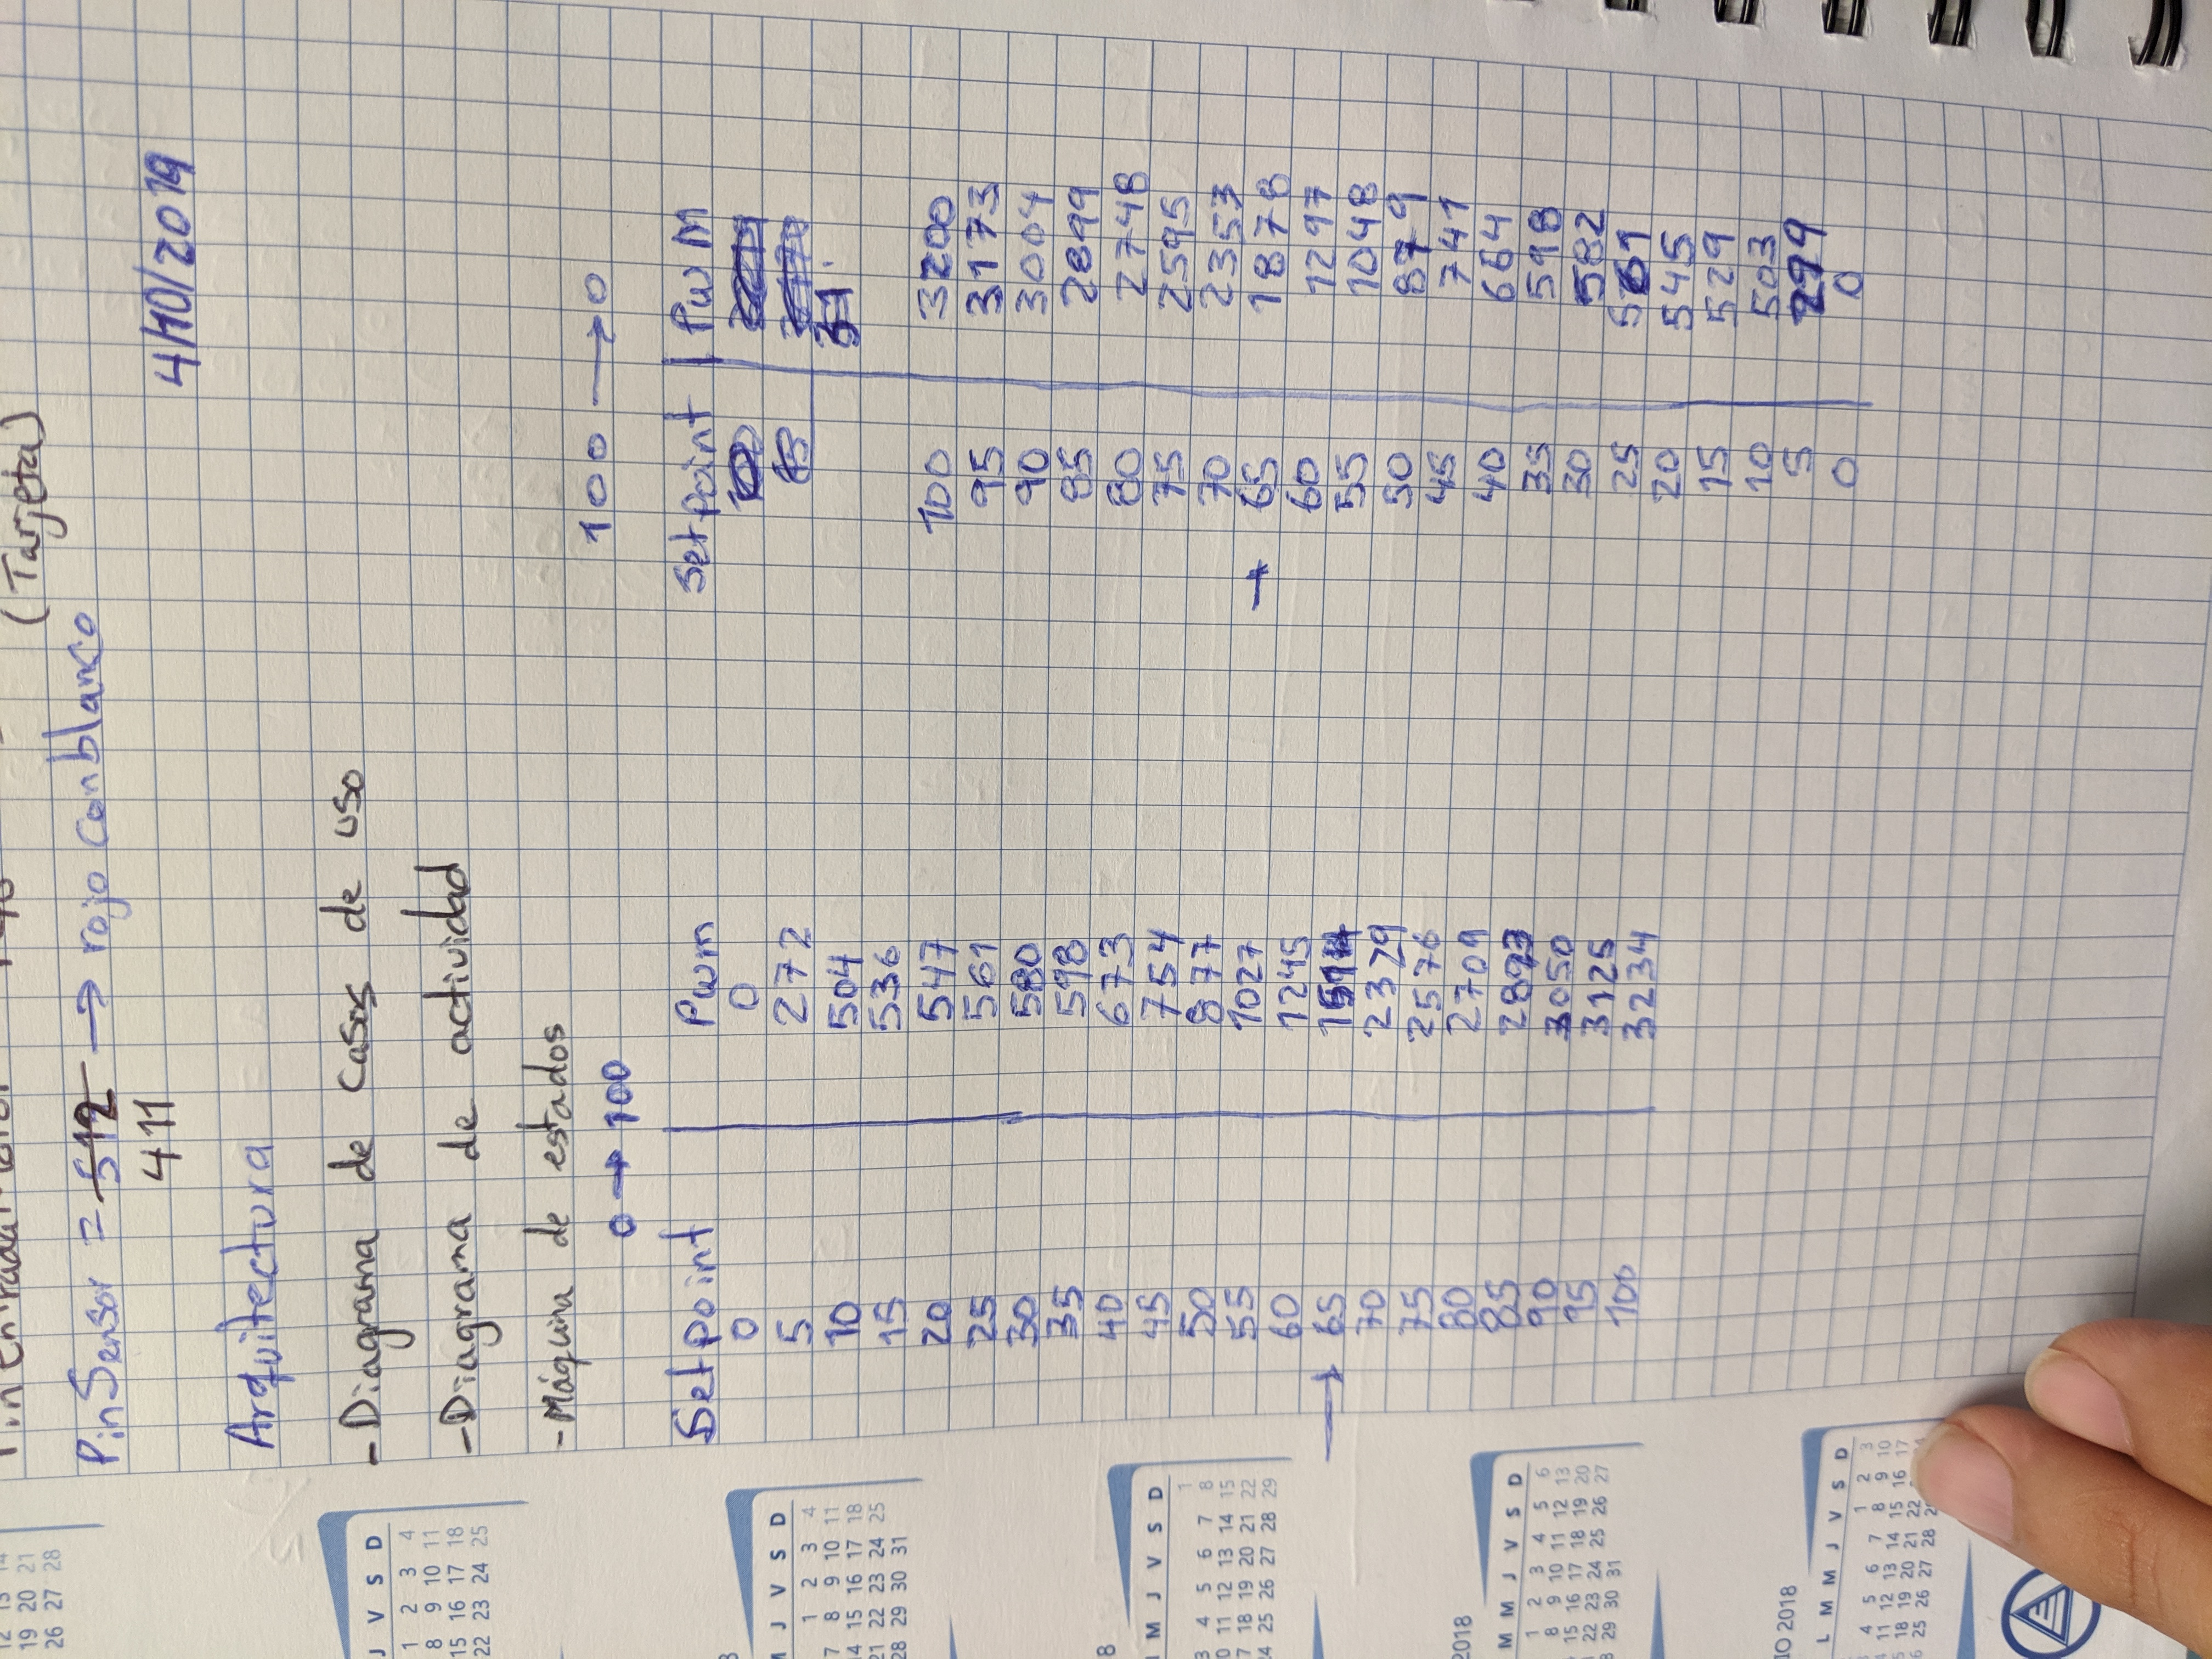 (Tarjeta)
PinSensor = 512 → rojo con blanco
411
4/10/2019
Arquitectura
-Diagrama de casos de uso
-Diagrama de actividad
-Máquina de estados
0 → 100
Setpoint Pwm
0 0
5 272
10 504
15 536
20 547
25 561
30 580
35 598
40 673
45 754
50 877
55 1027
60 1245
→ 65
70 2329
75 2576
80 2709
85 2893
90 3050
95 3125
100 3234
100 → 0
Setpoint PwM
100 3200
95 3173
90 3004
85 2899
80 2748
75 2595
70 2353
→ 65 1878
60 1297
55 1048
50 879
45 741
40 664
35 598
30 582
25 561
20 545
15 529
10 503
5 299
0 0
19 20 21
26 27 28
J V S D
1 2 3 4
8 9 10 11
15 16 17 18
22 23 24 25
J V S D
1 2 3 4
7 8 9 10 11
14 15 16 17 18
21 22 23 24 25
28 29 30 31
M J V S D
1
3 4 5 6 7 8
10 11 12 13 14 15
17 18 19 20 21 22
24 25 26 27 28 29
2018
M M J V S D
1 2 3 4 5 6
8 9 10 11 12 13
15 16 17 18 19 20
22 23 24 25 26 27
29 30 31
IO 2018
L M M J V S D
1 2 3
4 5 6 7 8 9 10
11 12 13 14 15 16 17
18 19 20 21 22
25 26 27 28